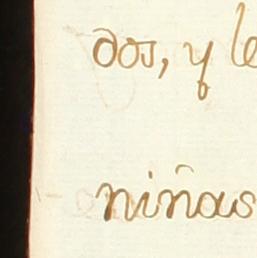 dos, y le
niñas